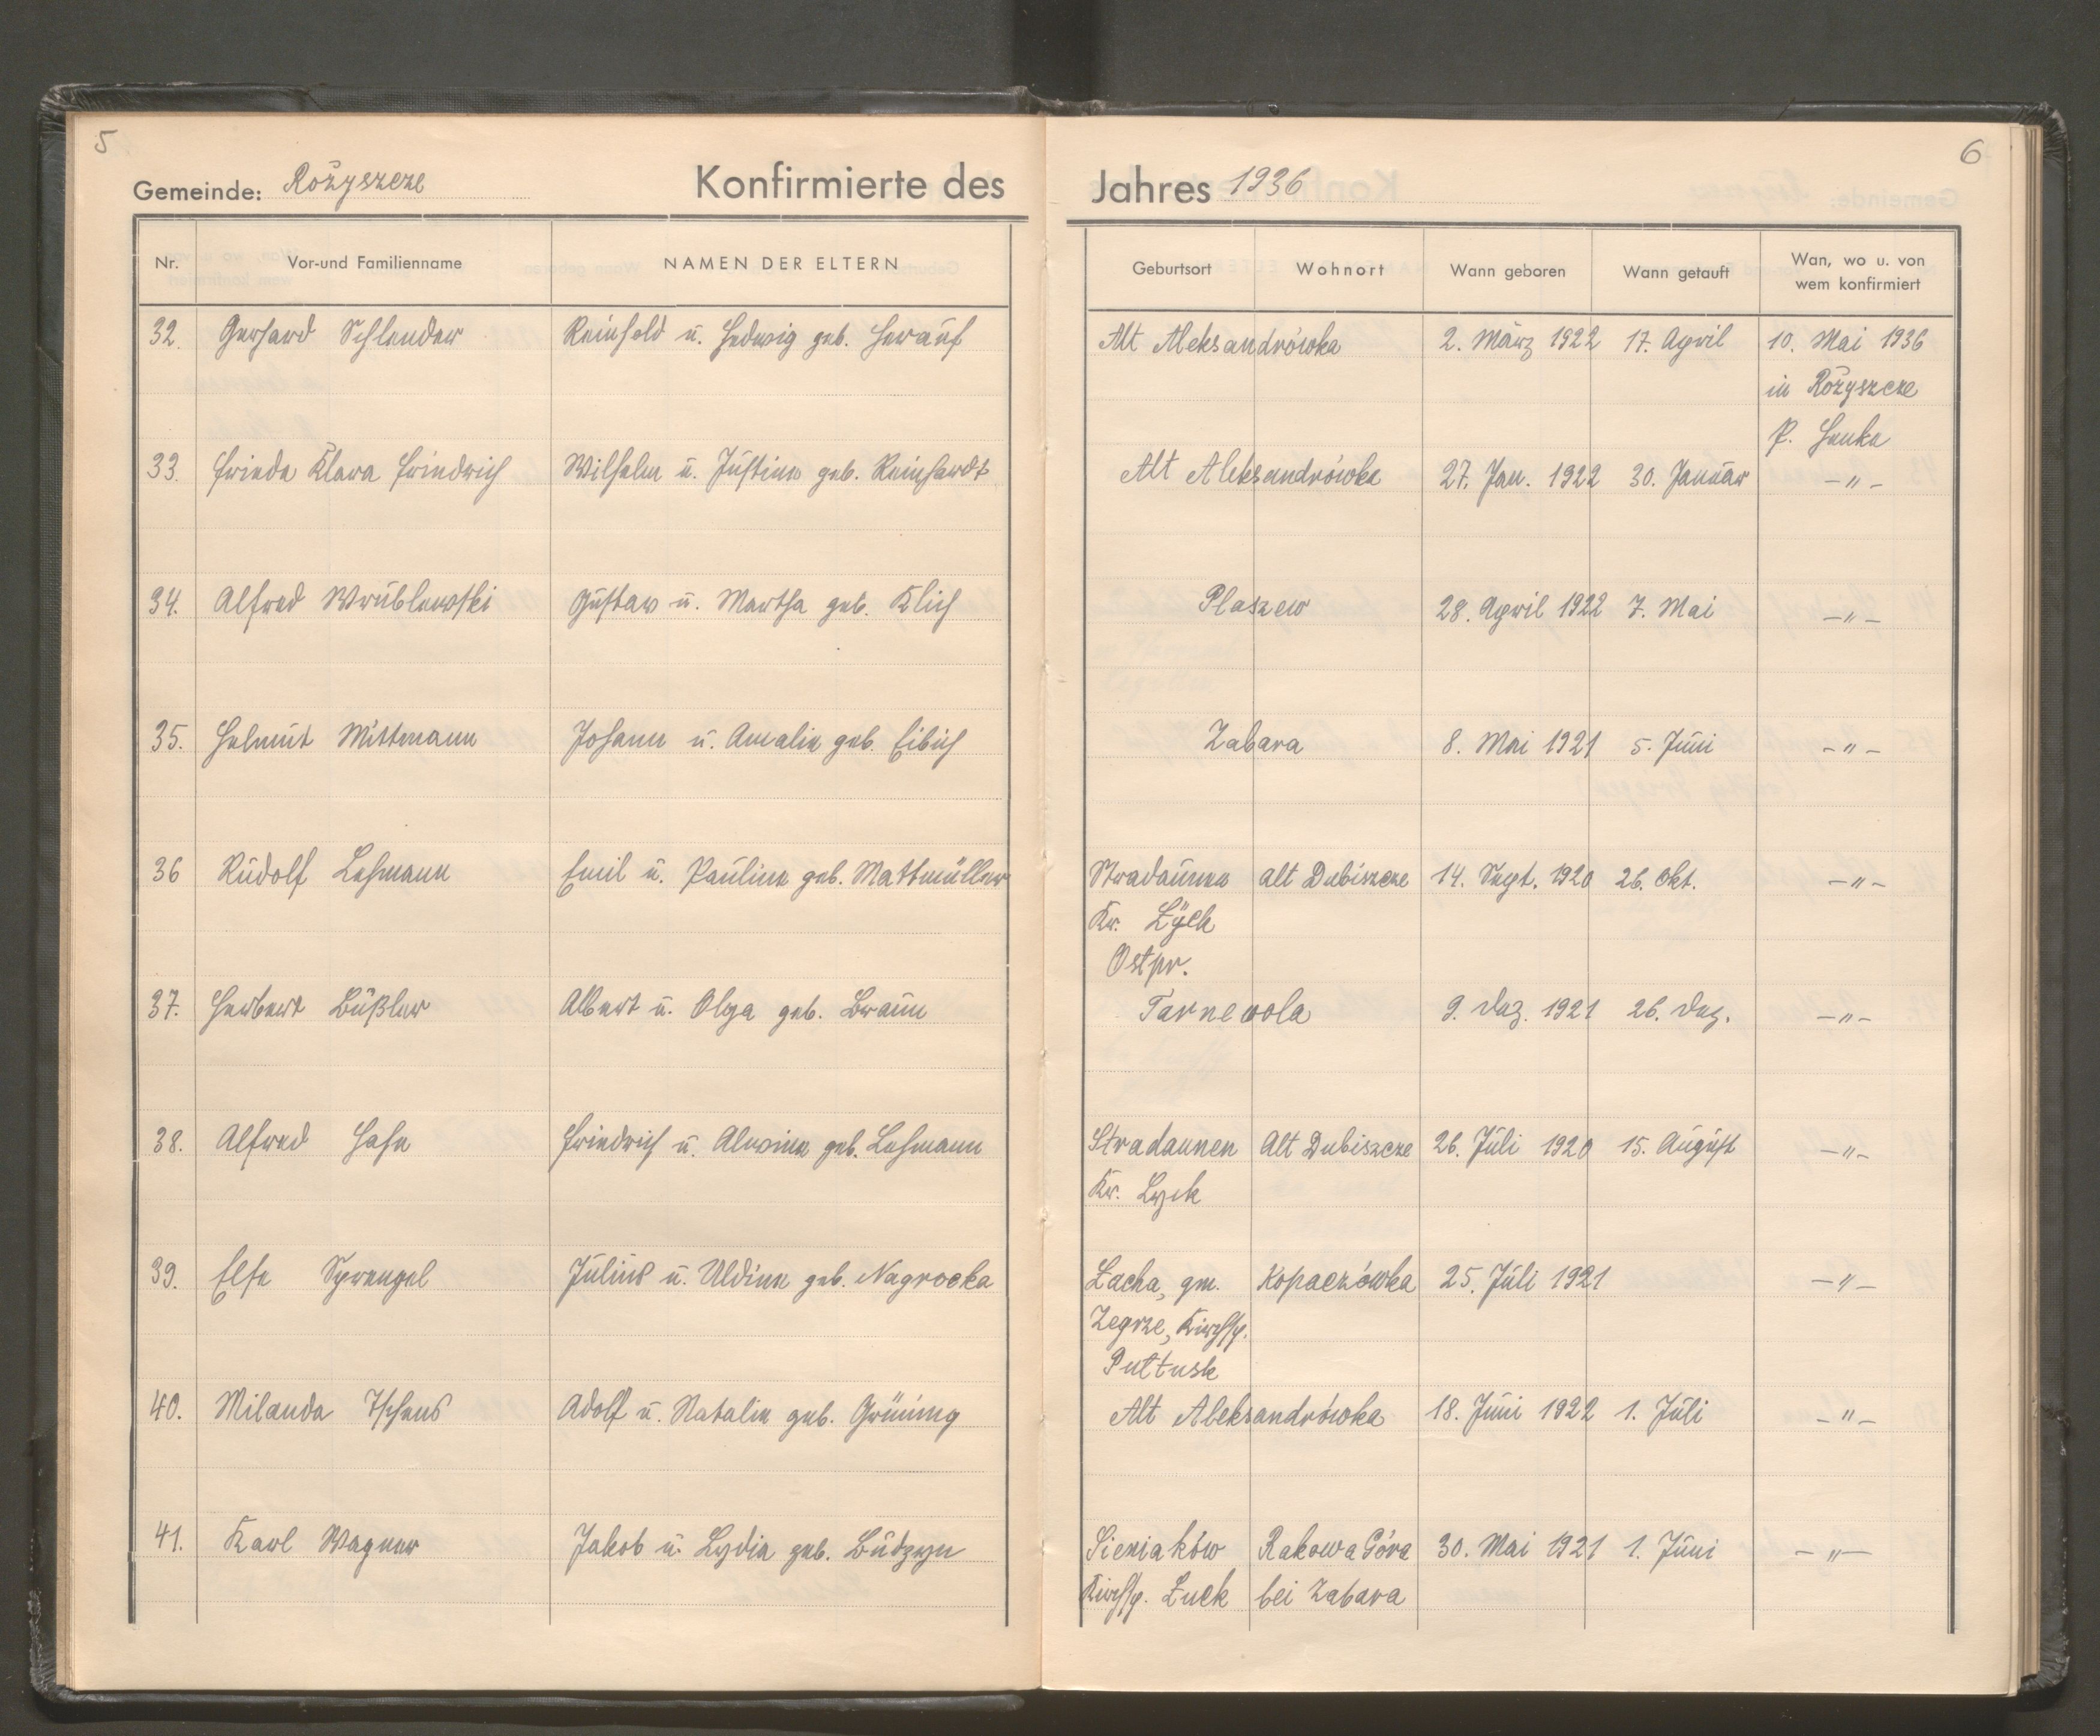 5
Gemeinde: Rożyszcze
Konfirmierte des
Nr. Vor-und Familienname NAMEN DER ELTERN
32. Gerhard Schlender Reinhold u. Hedwig geb. Herauf
33. Frieda Klara Friedrich Wilhelm u. Justine geb. Reinhardt
34. Alfred Wrüblewski Gustaw u. Martha geb. Klich
35. Helmut Mittmann Johann u. Amalie geb. Eibich
36 Rudolf Lehmann Emil u. Pauline geb. Mattmüller
37. Herbert Büßler Albert u. Olga geb. Braun
38. Alfred Hahn Friedrich u. Alwine geb. Lehmann
39. Else Sprengel Julius u. Uldine geb. Nagrocka
40. Milanda Adolf u. Natalie geb. Grüning
41. Karl Wagner Jakob u. Lydia geb. Budzyn
6
Jahres 1936
Geburtsort Wohnort Wann geboren Wann getauft Wan, wo u. von
wem konfirmiert
Alt Aleksandrówka 2. März 1922 17. April 10. Mai 1936
in Rożyszcze
P. Henke
Alt Aleksandrówka 27. Jan. 1922 30. Januar -"-
Plaszew 28. April 1922 7. Mai -"-
Zabara 8. Mai 1921 5. Juni -"-
Stradaunen alt Dubiszcze 14. Sept. 1920 26. Okt. -"-
Kr. Lÿck
Ostpr.
Tarnewola 9. Dez. 1921 26. Dez. -"-
Stradaunen Alt Dubiszcze 26. Juli 1920 15. August -"-
Kr. Lyck
Łacha, gm. Kopaczówka 25. Juli 1921 -"-
Zegrze, Kirchsp.
Pułtusk
Alt Aleksandrówka 18. Juni 1922 1. Juli -"-
Sieniaków Rakowa Góra 30. Mai 1921 1. Juni -"-
Kirchsp. Łuck bei Zabara